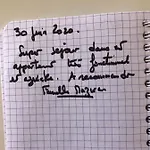 30 juin 2020.
Super séjour dans cet
appartement très fonctionnel
et agréable. A recommander
Famille